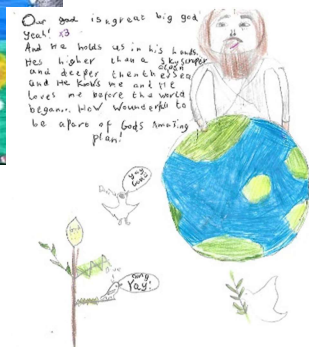 Our god is a great big god
Yeah! x3
And He holds us in his hands.
Hes higher than a skyscraper
and deeper then the ocean Sea
and He Knows me and He
loves me before the world
began... How wounderful to
be apart of Gods Amazing
plan!
yay
Yay!